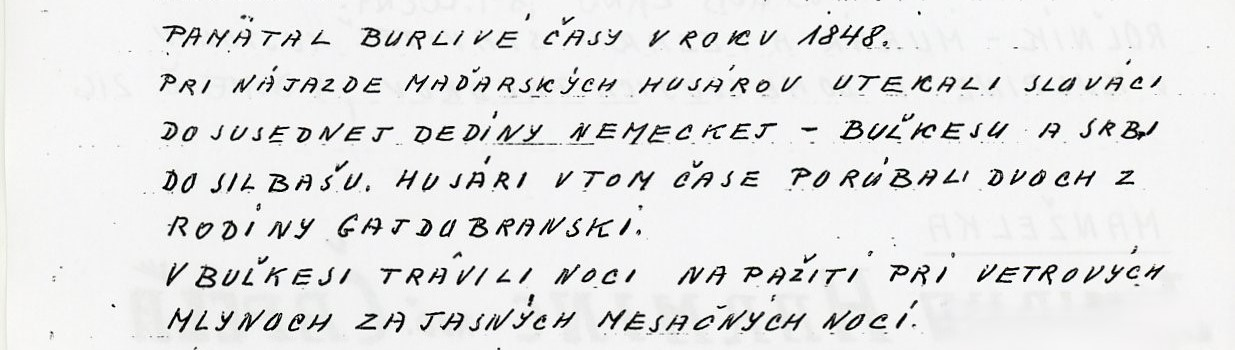 PAMÄTAL BURLIVÉ ČASY V ROKU 1848.
PRI NÁJAZDE MAĎARSKÝCH HUSÁROV UTEKALI SLOVÁCI
DO SUSEDNEJ DEDINY NEMECKEJ - BUĽKESU A SRBI
DO SILBAŠU. HUSÁRI V TOM ČASE PORÚBALI DVOCH Z
RODINY GAJDOBRANSKÍ.
V BUĽKESI TRÁVILI NOCI NA PAŽITI PRI VETROVÝCH
MLYNOCH ZA JASNÝCH MESAČNÝCH NOCÍ.